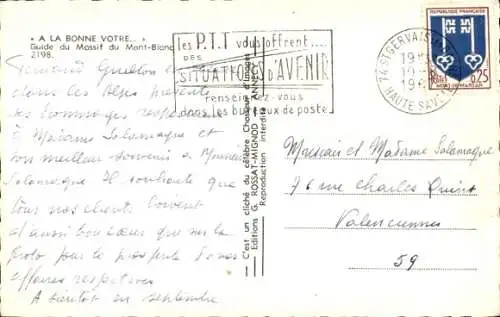 « A LA BONNE VOTRE... »
Guide du Massif du Mont-Blanc
2198.
les P.T.T vous offrent....
DES
SITUATIONS d'AVENIR
renseignez-vous
dans les bureaux de poste
74 ST GERVAIS
HAUTE SAVOIE
REPUBLIQUE FRANÇAISE
0,25
MONT-DE-MARSAN
dans les Alpes présente
ses hommages respectueux
à Madame Salamagne et
son meilleur souvenir à Monsieur
Salamagne. Il souhaite que
tous nos clients boivent
d'aussi bon cœur que sur la
photo pour la prospérité d'nos
affaires respectives
A bientôt en septembre
— C'est un cliché du célèbre Chasseur d'Images
Editions G. ROSSAT-MIGNOD — ANNECY
Reproduction interdite
Monsieur et Madame Salamagne
76 rue Charles Quint
Valenciennes
59